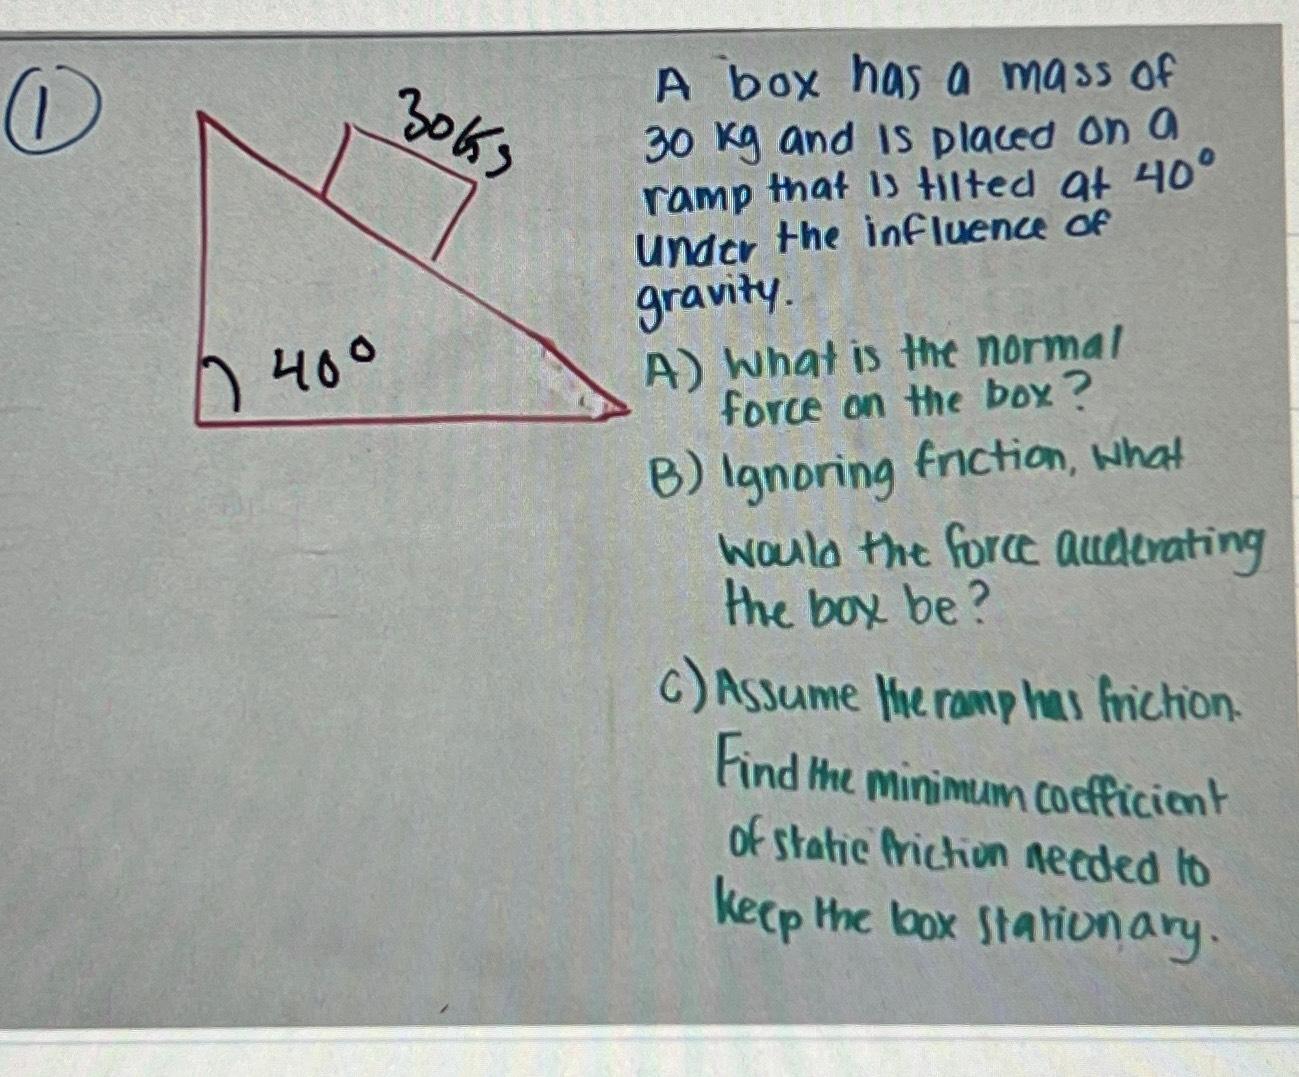 1
30Kg
40°
A box has a mass of
30 kg and is placed on a
ramp that is tilted at 40°
under the influence of
gravity.
A) What is the normal
force on the box?
B) Ignoring friction, what
would the force accelerating
the box be?
C) Assume the ramp has friction.
Find the minimum coefficient
of static friction needed to
keep the box stationary.